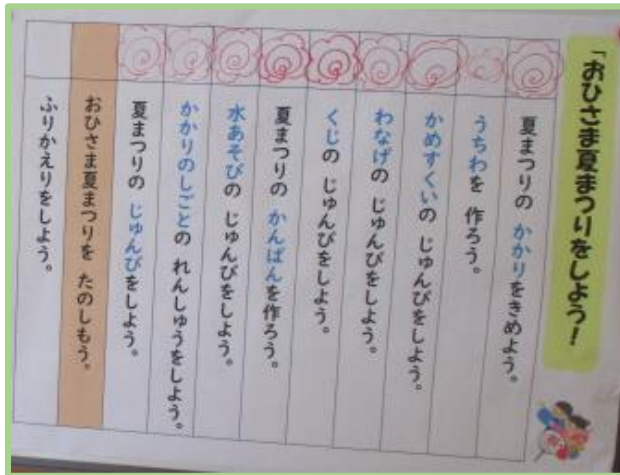 「おひさま夏まつりをしよう！
夏まつりの かかりをきめよう。
うちわを 作ろう。
かめすくいの じゅんびをしよう。
わなげの じゅんびをしよう。
くじの じゅんびをしよう。
夏まつりの かんばんを作ろう。
水あそびの じゅんびをしよう。
かかりのしごとの れんしゅうをしよう。
夏まつりの じゅんびをしよう。
おひさま夏まつりを たのしもう。
ふりかえりをしよう。